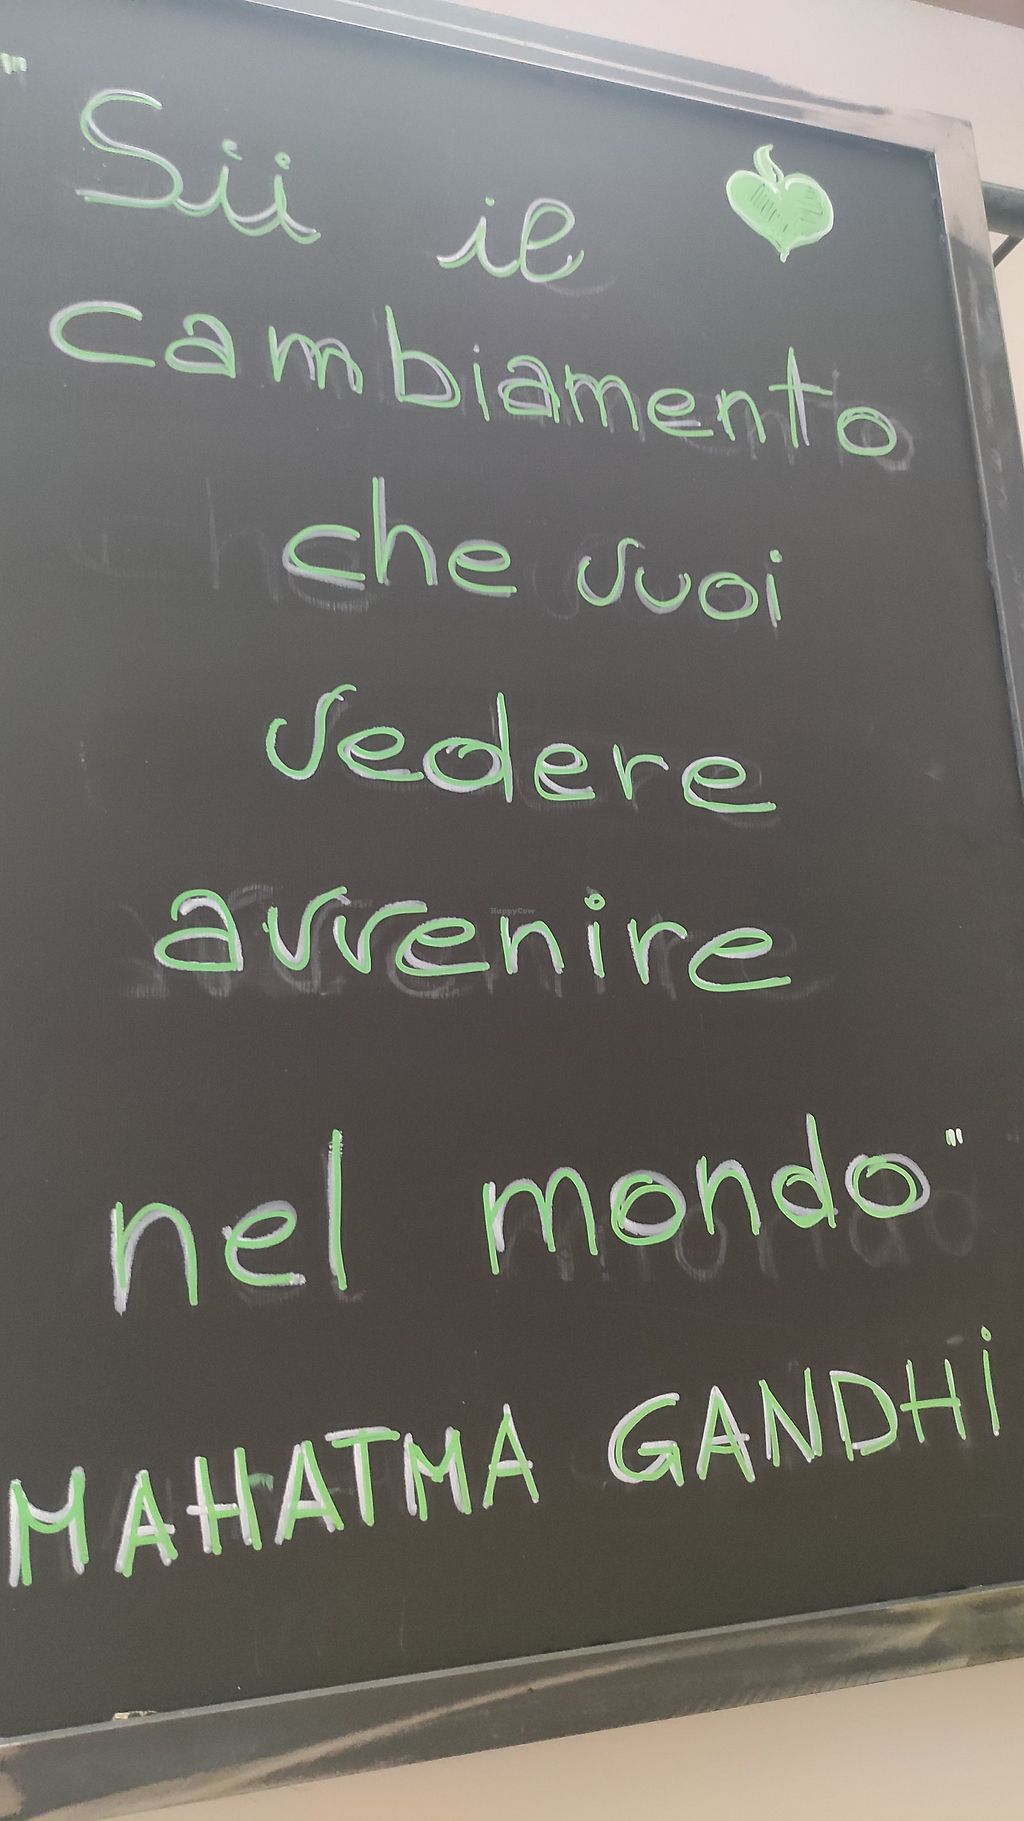 "Sii il
cambiamento
che vuoi
vedere
avvenire
HappyCow
nel mondo"
MAHATMA GANDHi